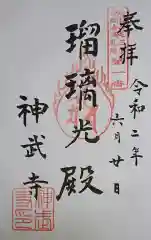 奉拝
令和二年
六月廿日
瑠璃光殿
神武寺